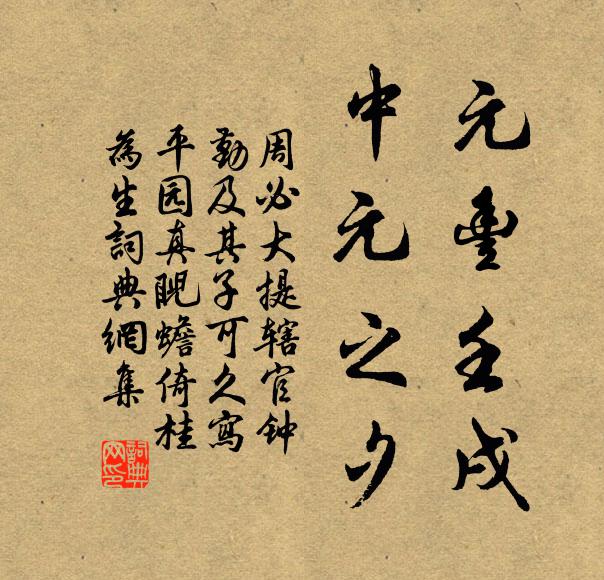 元豐壬戌
中元之夕
周必大提辖官钟
勤及其子可久寫
平园真貺蟾倚桂
為生詞典網集
詞典
网印